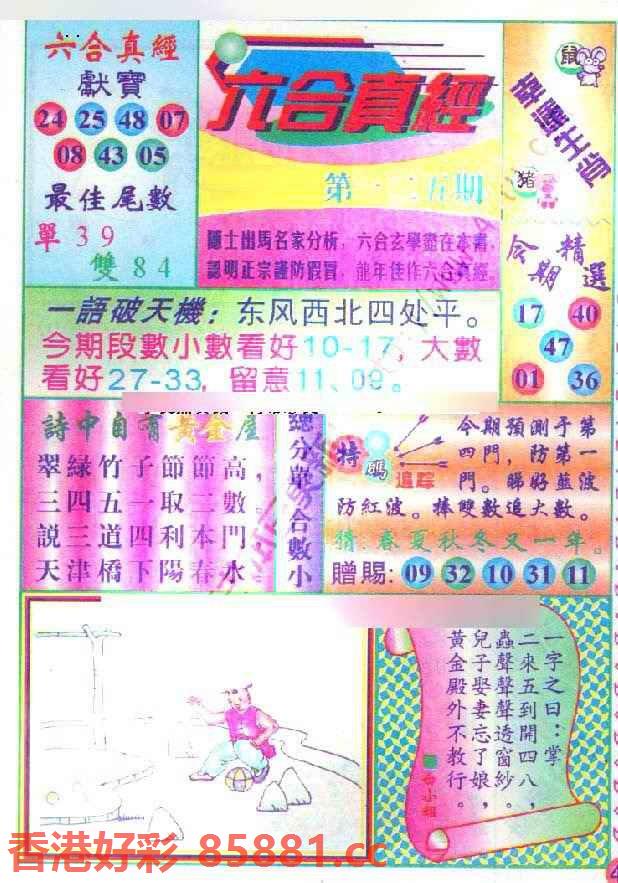 六合真經
獻寶
24 25 48 07
08 43 05
最佳尾數
單39
雙84
六合真經
第一二五期
隱士出馬名家分析，六合玄學盡在本書，
認明正宗謹防假冒，龍年佳作六合真經。
鼠
幸運生肖
猪
今期精選
17 40
47
01 36
一語破天機：东风西北四处平。
今期段數小數看好10-17，大數
看好27-33，留意11、09。
詩中自有黃金屋
翠綠竹子節節高，
三四五一取二數。
説三道四利本門
天津橋下陽春水
總分單合數小
特碼追踪
今期預測于第
四門，防第一
門。睇好藍波
防紅波。捧雙數追大數。
猜：春夏秋冬又一年。
贈賜：09 32 10 31 11
一字之曰：掌
二來五到開四八，
蟲聲聲聲透窗紗。
兒子娶妻忘了娘，
黃金殿外不教行。
白小姐
香港好彩 85881.cc